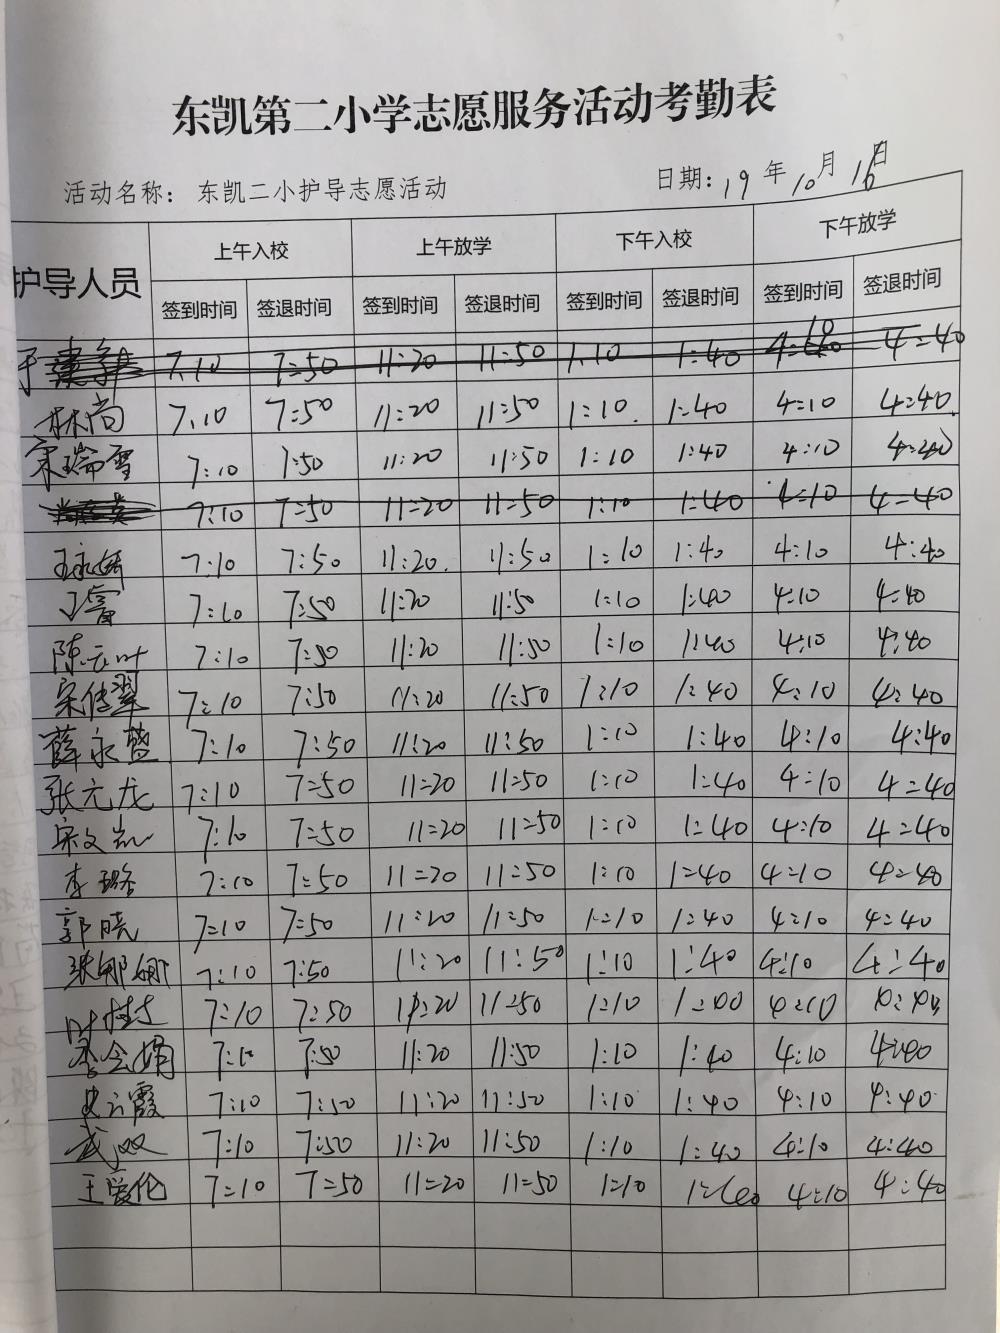 东凯第二小学志愿服务活动考勤表
活动名称： 东凯二小护导志愿活动 日期: 19 年 10 月 16 日
护导人员 上午入校 上午放学 下午入校 下午放学
签到时间 签退时间 签到时间 签退时间 签到时间 签退时间 签到时间 签退时间
7:10 7:50 11:20 11:50 1:10 1:40 4:10 4:40
林尚 7:10 7:50 11:20 11:50 1:10 1:40 4:10 4:40
宋瑞雪 7:10 7:50 11:20 11:50 1:10 1:40 4:10 4:40
7:10 7:50 11:20 11:50 1:10 1:40 4:10 4:40
7:10 7:50 11:20 11:50 1:10 1:40 4:10 4:40
丁富 7:10 7:50 11:20 11:50 1:10 1:40 4:10 4:40
陈云叶 7:10 7:50 11:20 11:50 1:10 1:40 4:10 4:40
宋传翠 7:10 7:50 11:20 11:50 1:10 1:40 4:10 4:40
薛永慧 7:10 7:50 11:20 11:50 1:10 1:40 4:10 4:40
张元龙 7:10 7:50 11:20 11:50 1:10 1:40 4:10 4:40
宋文凯 7:10 7:50 11:20 11:50 1:10 1:40 4:10 4:40
李璐 7:10 7:50 11:20 11:50 1:10 1:40 4:10 4:40
郭晓 7:10 7:50 11:20 11:50 1:10 1:40 4:10 4:40
张娜娜 7:10 7:50 11:20 11:50 1:10 1:40 4:10 4:40
7:10 7:50 11:20 11:50 1:10 1:40 4:10 4:40
李会娟 7:10 7:50 11:20 11:50 1:10 1:40 4:10 4:40
史云霞 7:10 7:50 11:20 11:50 1:10 1:40 4:10 4:40
武双 7:10 7:50 11:20 11:50 1:10 1:40 4:10 4:40
王爱伦 7:10 7:50 11:20 11:50 1:10 1:40 4:10 4:40